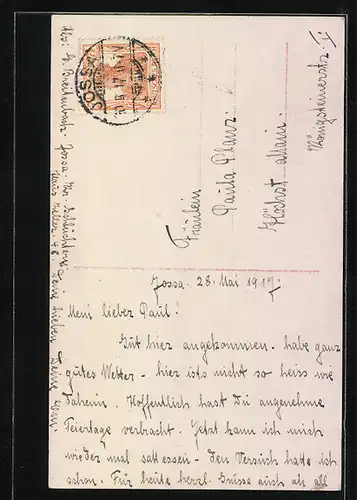 JOSSA
Fräulein
Paula Pfanz
Höchst a/Main.
Königsteinerstr.
Jossa. 28. Mai 1917.
Mein lieber Paul!
Gut hier angekommen - habe ganz
gutes Wetter - hier ists nicht so heiss wie
daheim. Hoffentlich hast Du angenehme
Feiertage verbracht. Jetzt kann ich mich
wieder mal satt essen - den Versuch hatte ich
schon. Für heute herzl. Grüsse auch an all
Abs: E. Breitenbach. Jossa. Kr. Schlüchtern
Haus